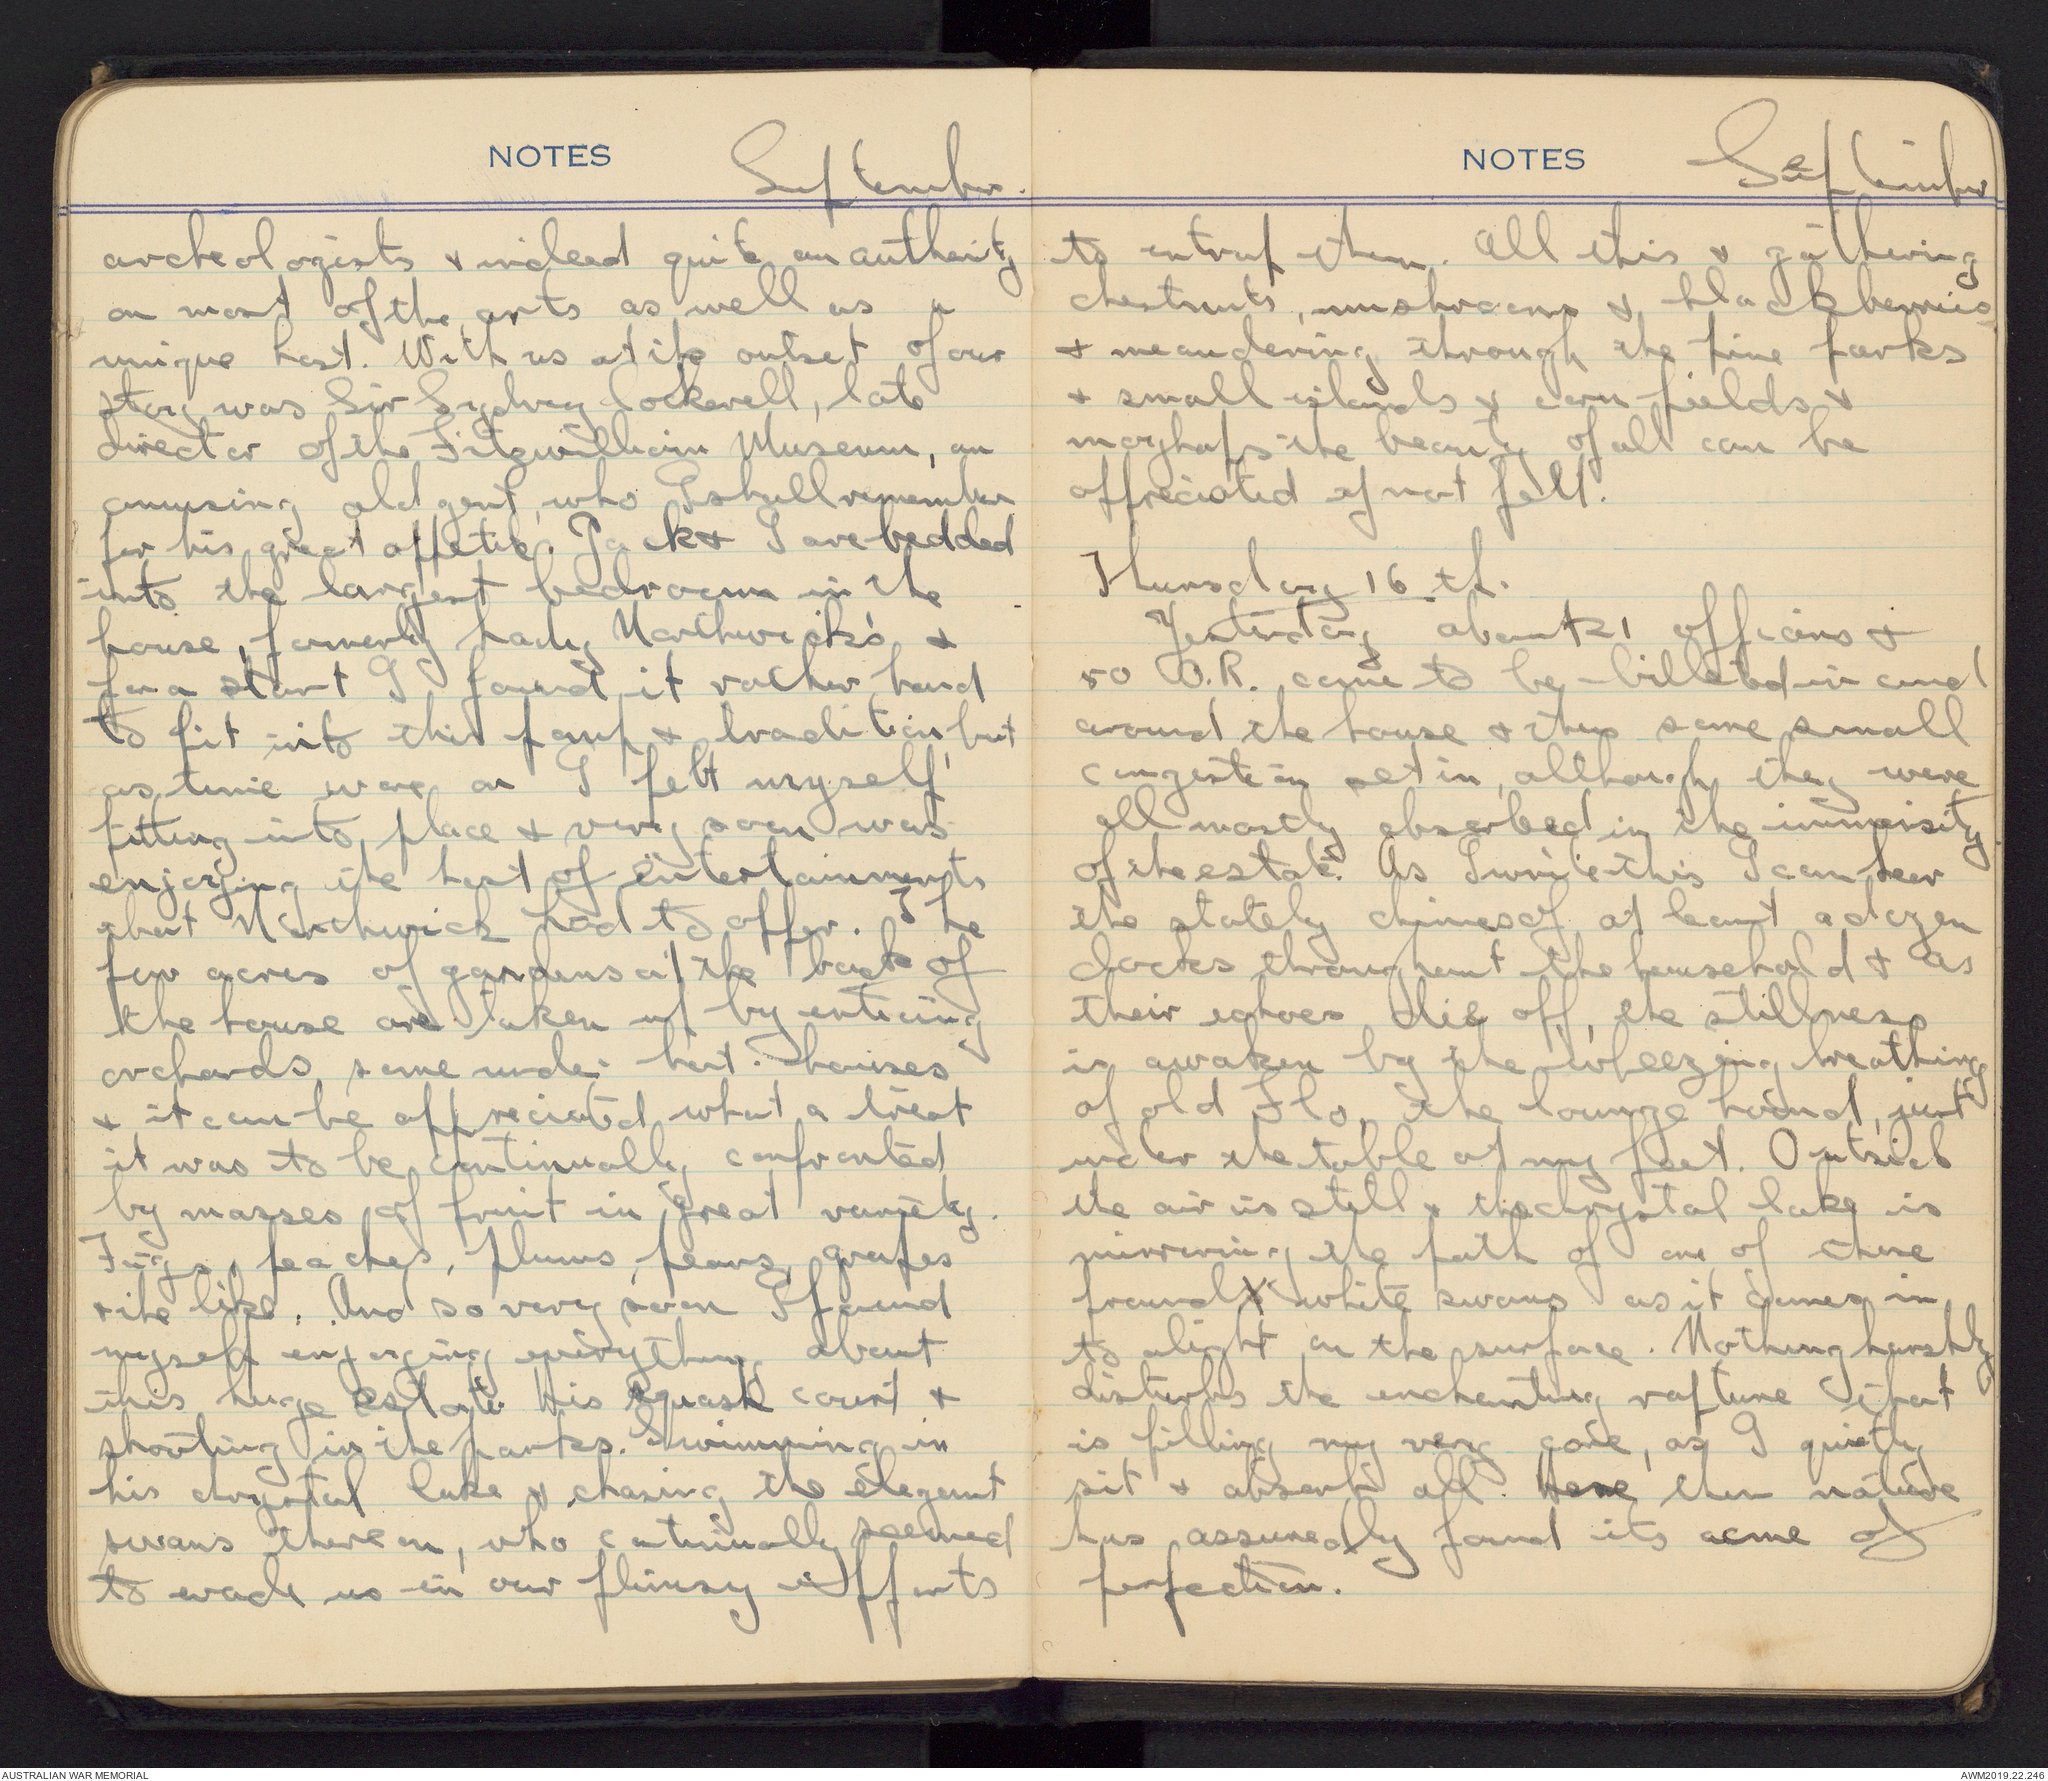 NOTES
September.
archeologists & indeed quite an authority
on most of the arts as well as a
unique host. With us at the outset of our
stay was Sir Sydney Cockerell, late
director of the Fitzwilliam Museum, an
amusing old gent, who I shall remember
for his great appetite. Jack & I are bedded
into the largest bedroom in the
house, formerly Lady Northwick's, &
for a start I found it rather hard
to fit into this pomp & tradition, but
as time wore on I felt myself
fitting into place & very soon was
enjoying the host of entertainments
that Northwick had to offer. The
few acres of gardens at the back of
the house are taken up by enticing
orchards, some under hot-houses
& it can be appreciated what a treat
it was to be continually confronted
by masses of fruit in great variety.
Figs, peaches, plums, pears, grapes
& the like. And so very soon I found
myself enjoying everything about
this huge estate. His squash court &
shooting in the parks. Swimming in
his chrystal lake & chasing the elegant
swans thereon, who continually seemed
to evade us in our flimsy efforts
NOTES
September
to entrap them. All this & gathering
chestnuts, mushrooms & blackberries
& meandering through the fine parks
& small islands & corn fields &
mayhaps the beauty of all can be
appreciated if not felt.
Thursday 16th.
Yesterday about 21 officers &
50 O.R. came to be billeted in and
around the house & thus some small
congestion set in, although they were
all mostly absorbed in the immensity
of the estate. As I write this I can hear
the stately chimes of at least a dozen
clocks throughout the household & as
their echoes die off, the stillness
is awaken by the wheezing breathing
of old Flo, the lounge hound, just
under the table at my feet. Outside
the air is still & the chrystal lake is
mirroring the path of one of those
proud white swans as it comes in
to alight on the surface. Nothing harshly
disturbs the enchanting rapture that
is filling my very core, as I quietly
sit & absorb all. Here then nature
has assuredly found its acme of
perfection.
AUSTRALIAN WAR MEMORIAL
AWM2019.22.246